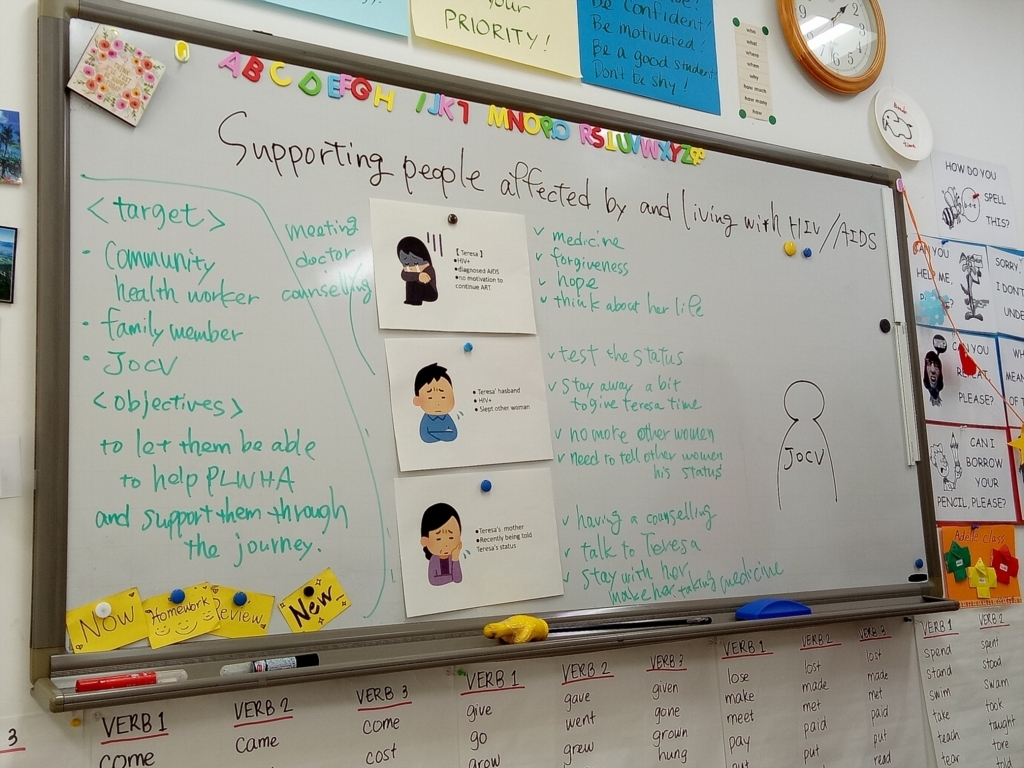 YOUR
PRIORITY!
Be confident!
Be motivated!
Be a good student
Don't be shy!
who
what
where
when
why
how much
how many
how
A B C D E F G H I J K 7 M N O P Q R S T U V W X Y Z
Supporting people affected by and living with HIV/AIDS
<target>
• Community
health worker
• family member
• JOCV
<objectives>
to let them be able
to help PLWHA
and support them through
the journey.
meeting
doctor
counselling
【Teresa】
•HIV+
•diagnosed AIDS
•no motivation to
continue ART
✓ medicine
✓ forgiveness
✓ hope
✓ think about her life
•Teresa' husband
•HIV+
•Slept other woman
✓ test the status
✓ stay away a bit
to give Teresa time
✓ no more other women
✓ need to tell other women
his status
•Teresa's, mother
•Recently being told
Teresa's status
✓ having a counselling
✓ talk to Teresa
✓ stay with her,
make her taking medicine
JOCV
Now
Homework
Review
New
HOW DO YOU
SPELL
THIS?
CAN YOU
HELP ME,
PLEASE?
SORRY,
I DON'T
UNDE
CAN YOU
REPEAT,
PLEASE?
WH
MEAN
OF T
CAN I
BORROW
YOUR
PENCIL, PLEASE?
Adelle class
3
VERB 1
come
VERB 2
came
VERB 3
come
cost
VERB 1
give
go
grow
VERB 2
gave
went
grew
VERB 3
given
gone
grown
hung
VERB 1
lose
make
meet
pay
put
VERB 2
lost
made
met
paid
put
VERB 3
lost
made
met
paid
put
read
VERB 1
spend
stand
swim
take
teach
tear
VERB 2
spent
stood
swam
took
taught
tore
told